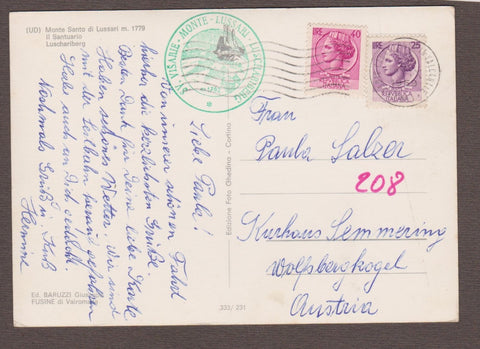 (UD) Monte Santo di Lussari m. 1779
Il Santuario
Luschariberg
SV. VISARIE - MONTE - LUSSARI - LUSCHARIBERG
LIRE 40
ITALIANA
LIRE 25
ITALIANA
Liebe Paula!
Von unserer schönen Fahrt
hierher die herzlichsten Grüße.
Besten Dank für Deine liebe Karte
Haben schönes Wetter. Wir sind
mit der Seilbahn herauf gefahren
Habe auch an Dich gedacht.
Nochmals Grüße u. Kuß
Hermine
Frau
Paula Salzer
208
Kurhaus Semmering
Wolfsbergkogel
Austria
Edizione Foto Ghedina - Cortina
333/ 231
Ed. BARUZZI
FUSINE di Valromana